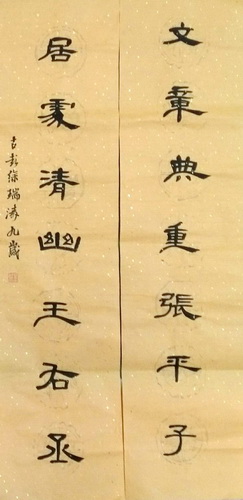 文章典重張平子
居處清幽王右丞
古彭徐瑞濤九歲